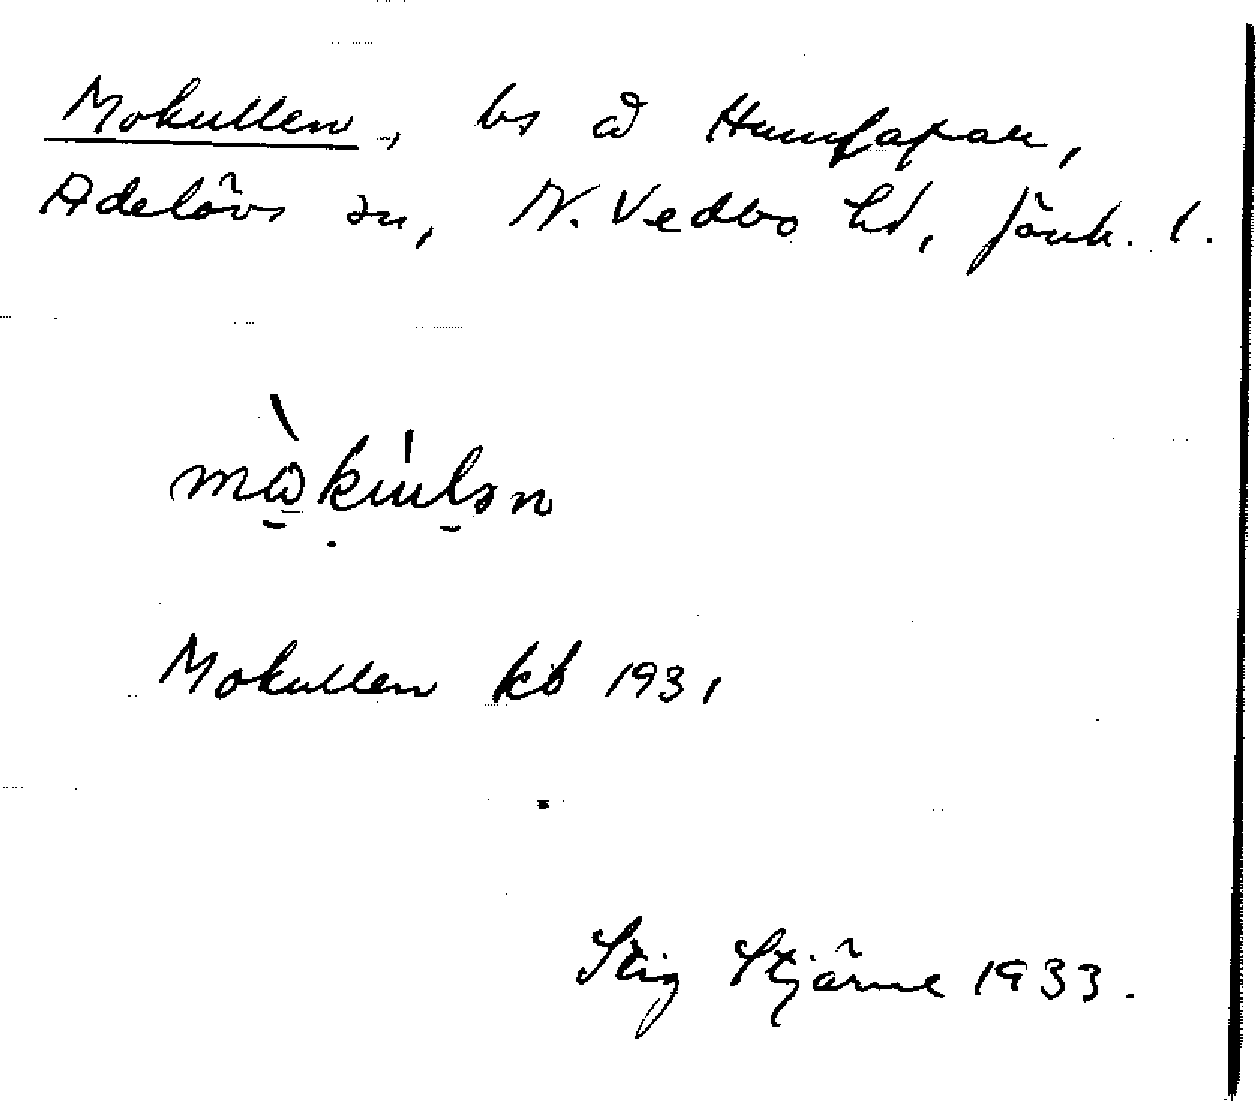 Mokullen, bs å
Adelövs sn, N. Vedbo hd, Jönk. l.
Mokullen kb 1931
Stig Stjärne 1933.